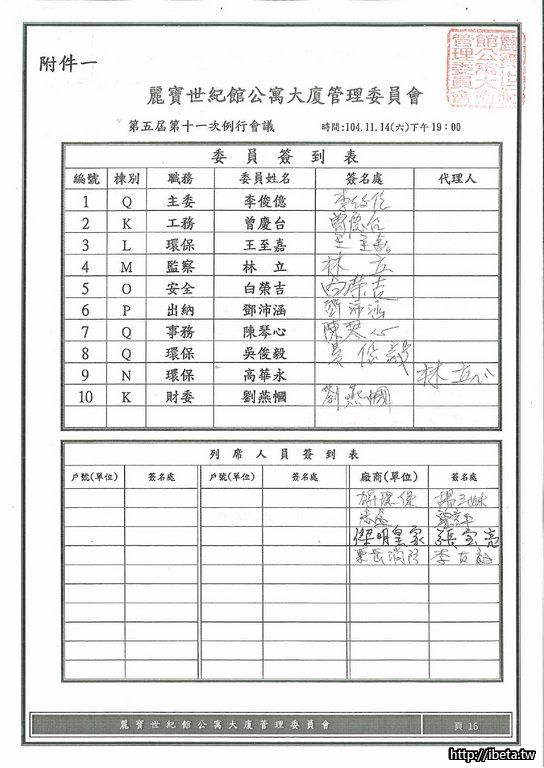 附件一
麗寶世紀館公寓大廈管理委員會
麗寶世紀館公寓大廈管理委員會
第五屆第十一次例行會議 時間:104.11.14(六)下午19:00
委員簽到表
編號 棟別 職務 委員姓名 簽名處 代理人
1 Q 主委 李俊億 李俊億
2 K 工務 曾慶台 曾慶台
3 L 環保 王至嘉 王至嘉
4 M 監察 林立 林立
5 O 安全 白榮吉 白榮吉
6 P 出納 鄧沛涵 鄧沛涵
7 Q 事務 陳琴心 陳琴心
8 Q 環保 吳俊毅 吳俊毅
9 N 環保 高華永 林立
10 K 財委 劉燕幗 劉燕幗
列席人員簽到表
戶號(單位) 簽名處 戶號(單位) 簽名處 廠商(單位) 簽名處
環保
傑明皇家 張宝亮
消防 李
麗寶世紀館公寓大廈管理委員會 頁 16
http://ibeta.tw